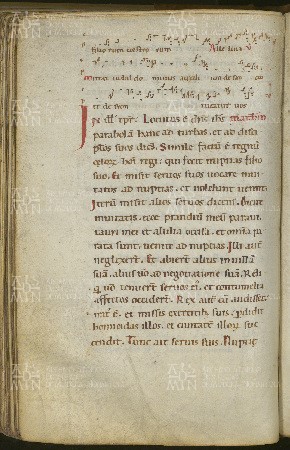 filiorum vestro rum
In ill. tpr. Locutus ē dns ihs matheum
parabolā hanc ad turbas. et ad disci
plos suos dicēs. Simile factū ē regnū
celorꝫ homī regi. qui fecit nuptias filio
suo. et misit seruos suos uocare inui
tatos ad nuptias. et nolebant uenire.
Iterū misit alios seruos dicens. Dicite
inuitatis. ecce prandiū meū paraui.
tauri mei et altilia occisa. et omnia pa
rata sunt. uenite ad nuptias. Illi aut
neglexert. Et abierт alius in uillam
suā. alius u̅o ad negotiationē suā. Reli
qi u̅o tenuerт seruos ei. et contumelia
affectos occiderт. Rex aut cū audisset
irat ē. et missis exercitib suis pdidit
homicidas illos. et ciuitatē illorꝫ suc
cendit. Tunc ait seruis suis. Nuptię